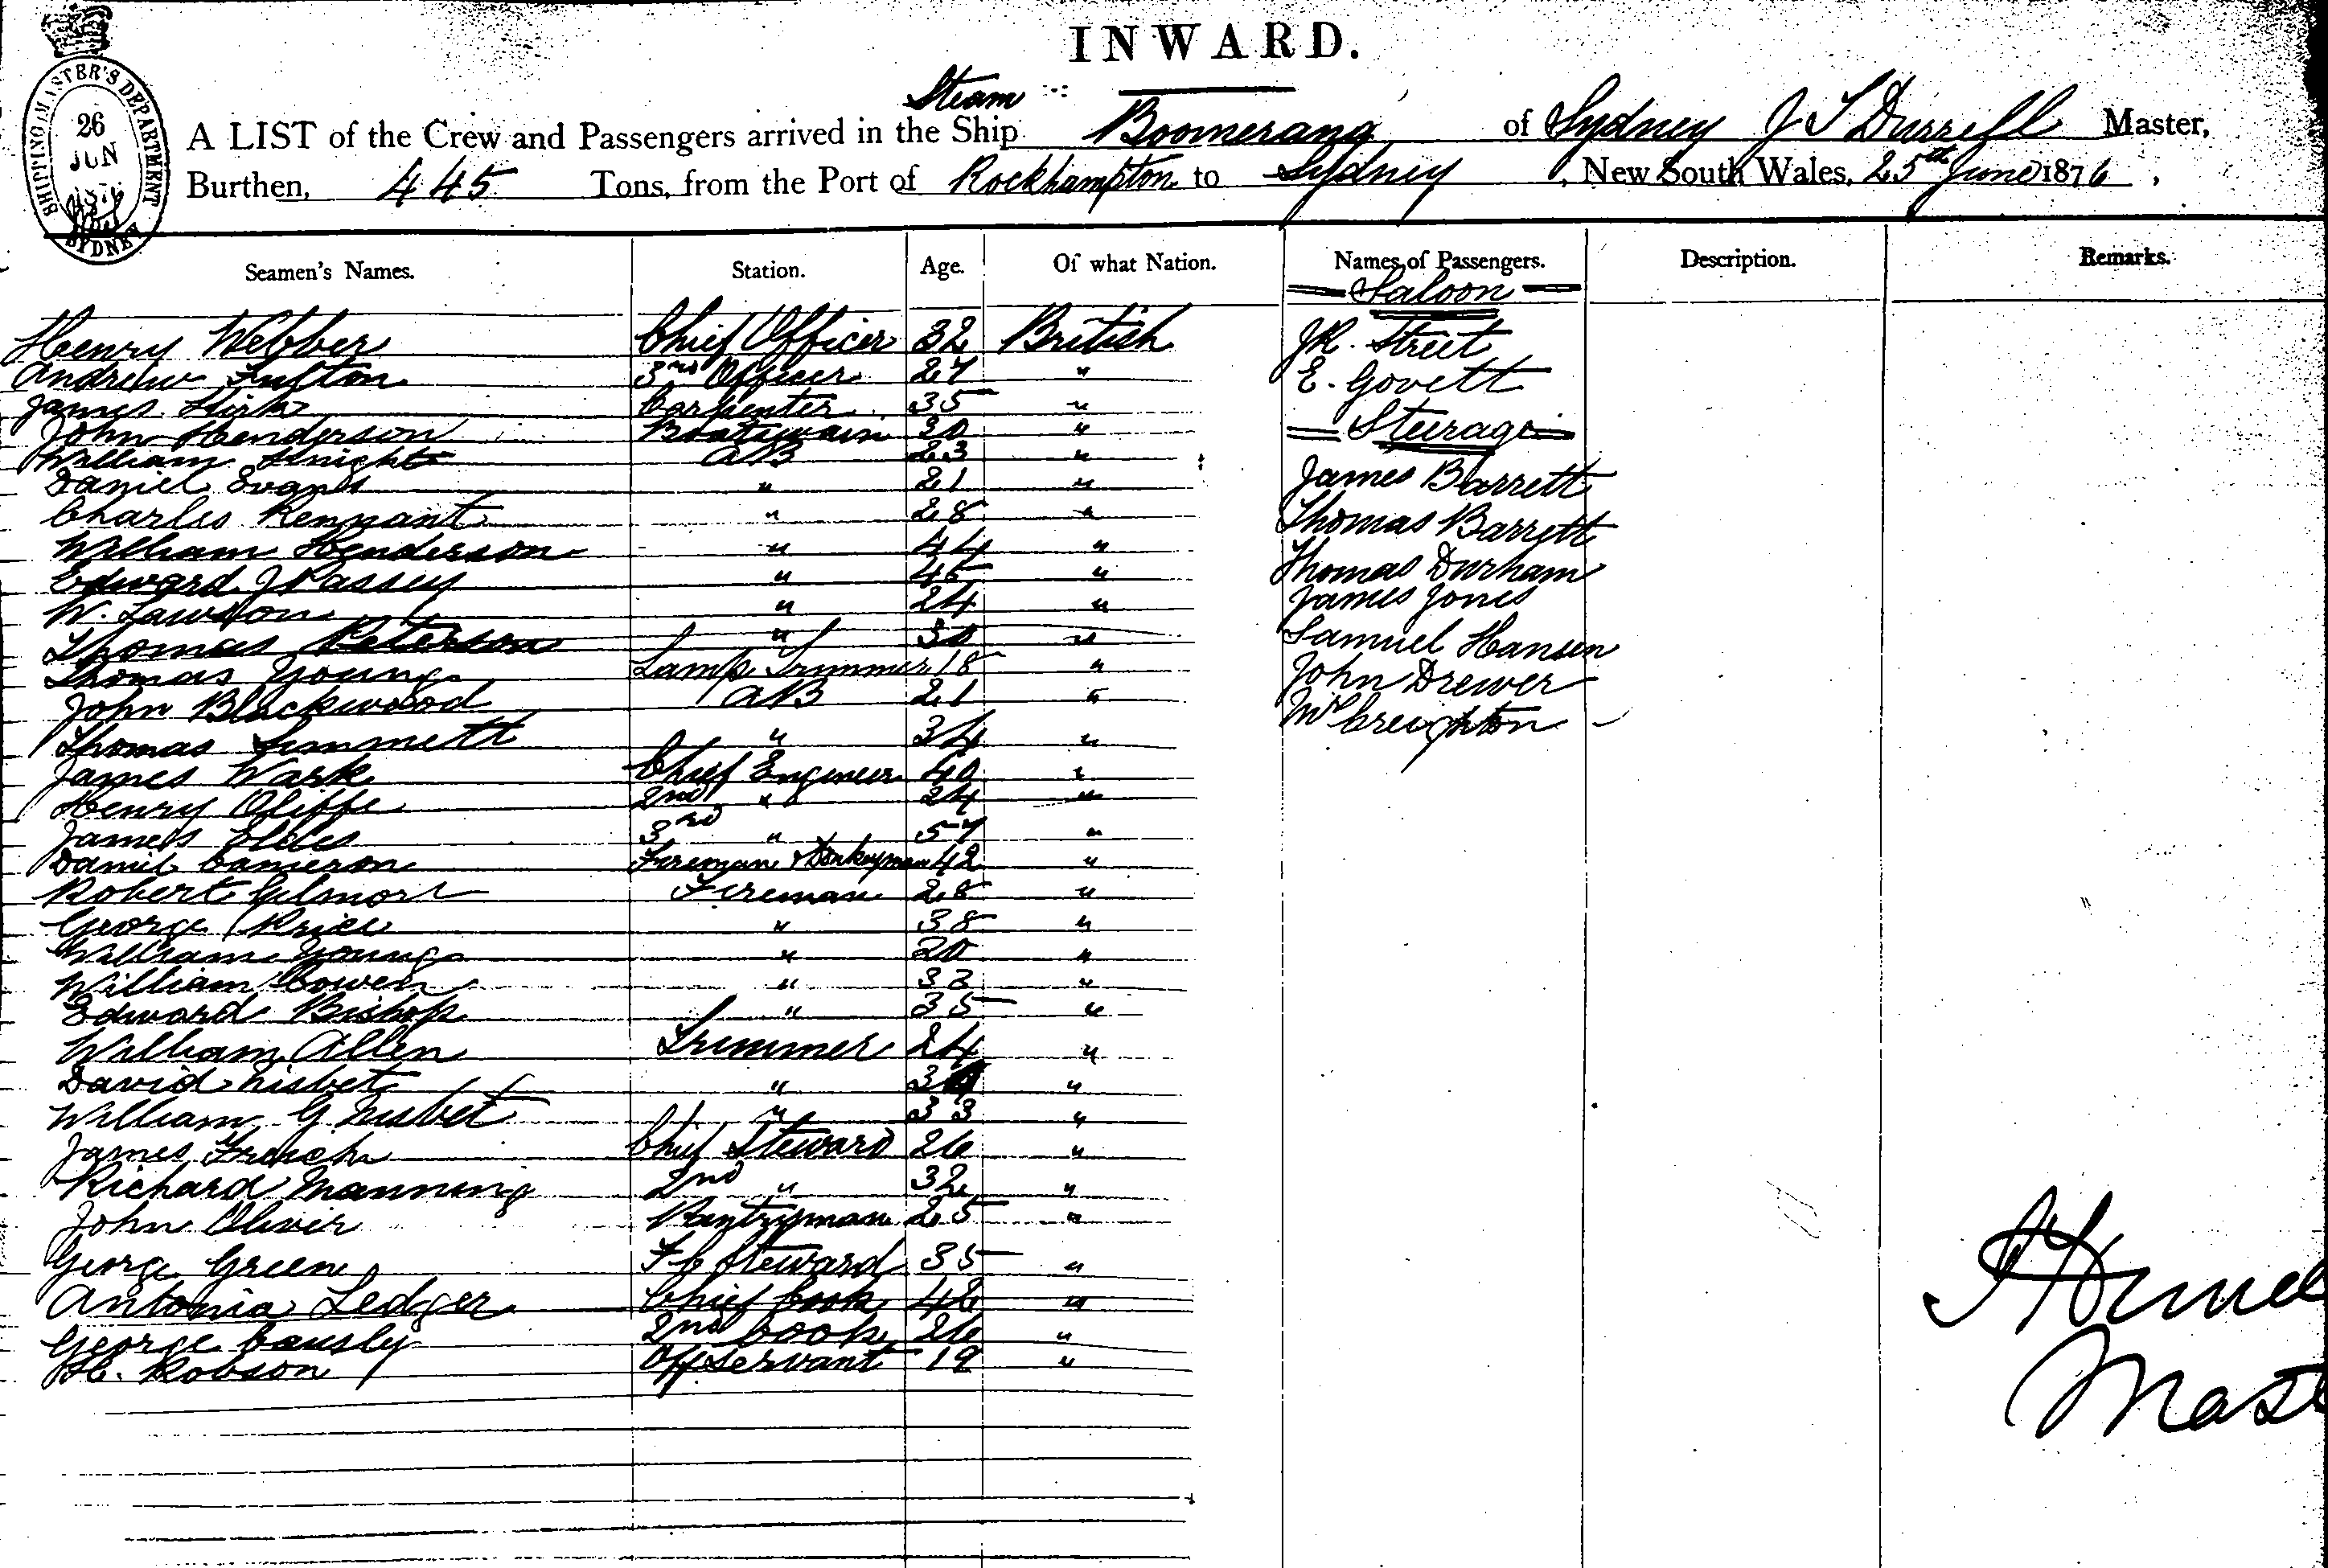 INWARD.
SHIPPING MASTER'S DEPARTMENT
26
JUN
1876
SYDNEY
Steam
A LIST of the Crew and Passengers arrived in the Ship Boomerang of Sydney J S Durrell Master,
Burthen, 445 Tons, from the Port of Rockhampton to Sydney, New South Wales, 25th June 1876,
Seamen's Names. Station. Age. Of what Nation. Names of Passengers. Description. Remarks.
Saloon
Henry Webber Chief Officer 32 British JR. Street
Andrew Fulton 3rd Officer 27 " E. Govett
James Kirk Carpenter 35 "
John Henderson Boatswain 30 " Steerage
William Knight AB 23 "
Daniel Evans " 21 " James Barrett
Charles Pennant " 28 " Thomas Barrett
William Henderson " 44 "
Edward J Passey " 45 " Thomas Durham
W. Lawson " 24 " James Jones
Thomas Peterson " 30 " Samuel Hansen
Thomas Young Lamp Trimmer 18 " John Drewer
John Blackwood AB 21 " Creighton
Thomas " 34 "
James Wark Chief Engineer 40 "
Henry Oliffe 2nd " 24 "
James 3rd " 57 "
Daniel Cameron Fireman & Donkeyman 42 "
Robert Gilmore Fireman 28 "
George Price " 38 "
William Young " 20 "
William Cowen " 33 "
Edward Bishop " 35 "
William Allen Trimmer 24 "
David Nisbet " "
William G Nisbet " 33 "
James French Chief Steward 26 "
Richard Manning 2nd " 32 "
John Olivir Pantryman 25 "
George Green F C Steward 35 "
Antonia Ledger Chief Cook 42 "
George Causly 2nd Cook 26 "
H. Robson Off Servant 19 "